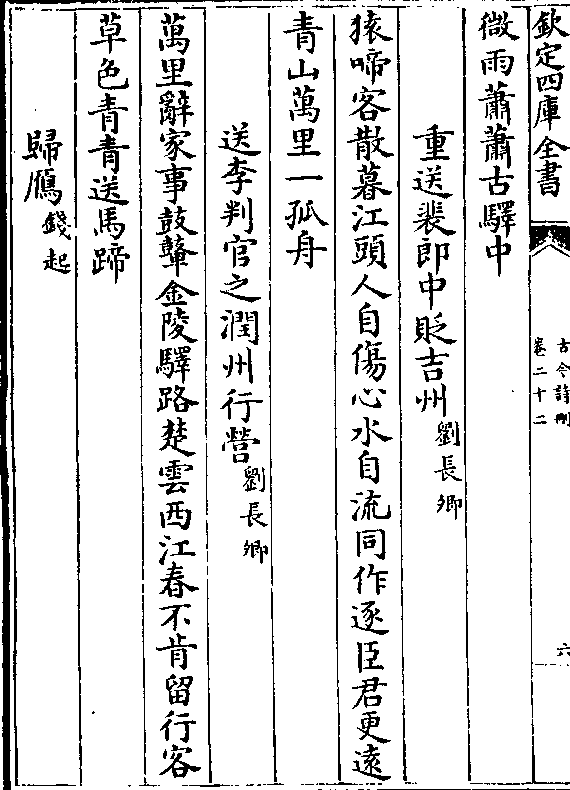 欽定四庫全書
古今詩刪
卷二十二
六
微雨蕭蕭古驛中
重送裴郎中貶吉州劉長卿
猿啼客散暮江頭人自傷心水自流同作逐臣君更遠
青山萬里一孤舟
送李判官之潤州行營劉長卿
萬里辭家事鼓鼙金陵驛路楚雲西江春不肯留行客
草色青青送馬蹄
歸鴈錢起